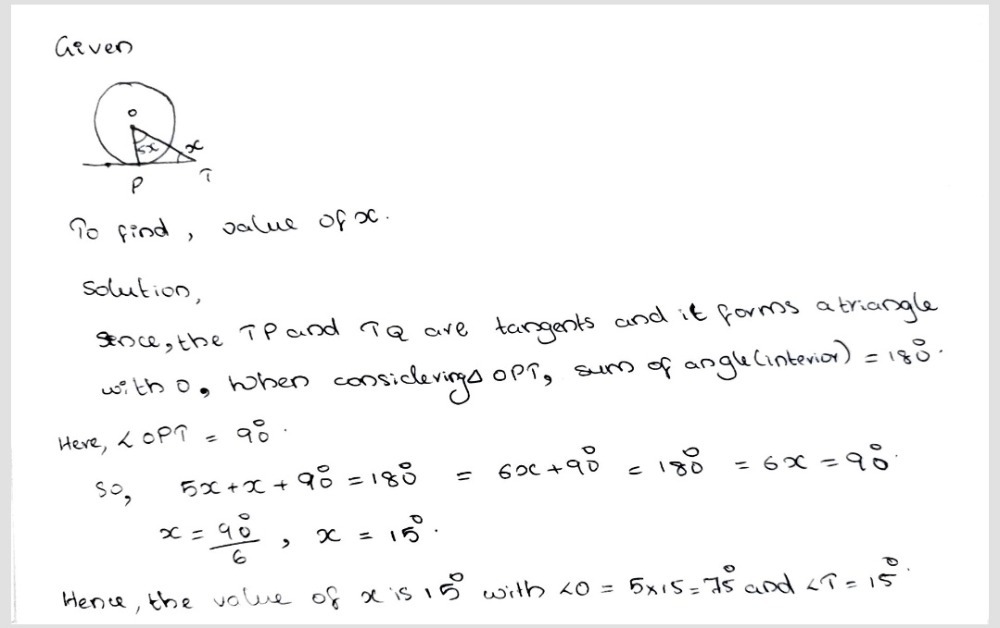 Given
O
5x x
P T
To find, value of x.
Solution,
Since, the TP and TQ are tangents and it forms a triangle
with O, When considering Δ OPT, sum of angle (interior) = 180°.
Here, ∠OPT = 90°.
So, 5x + x + 90° = 180° = 6x + 90° = 180° = 6x = 90°.
x = 90°/6 , x = 15°.
Hence, the value of x is 15° with ∠O = 5×15 = 75° and ∠T = 15°.